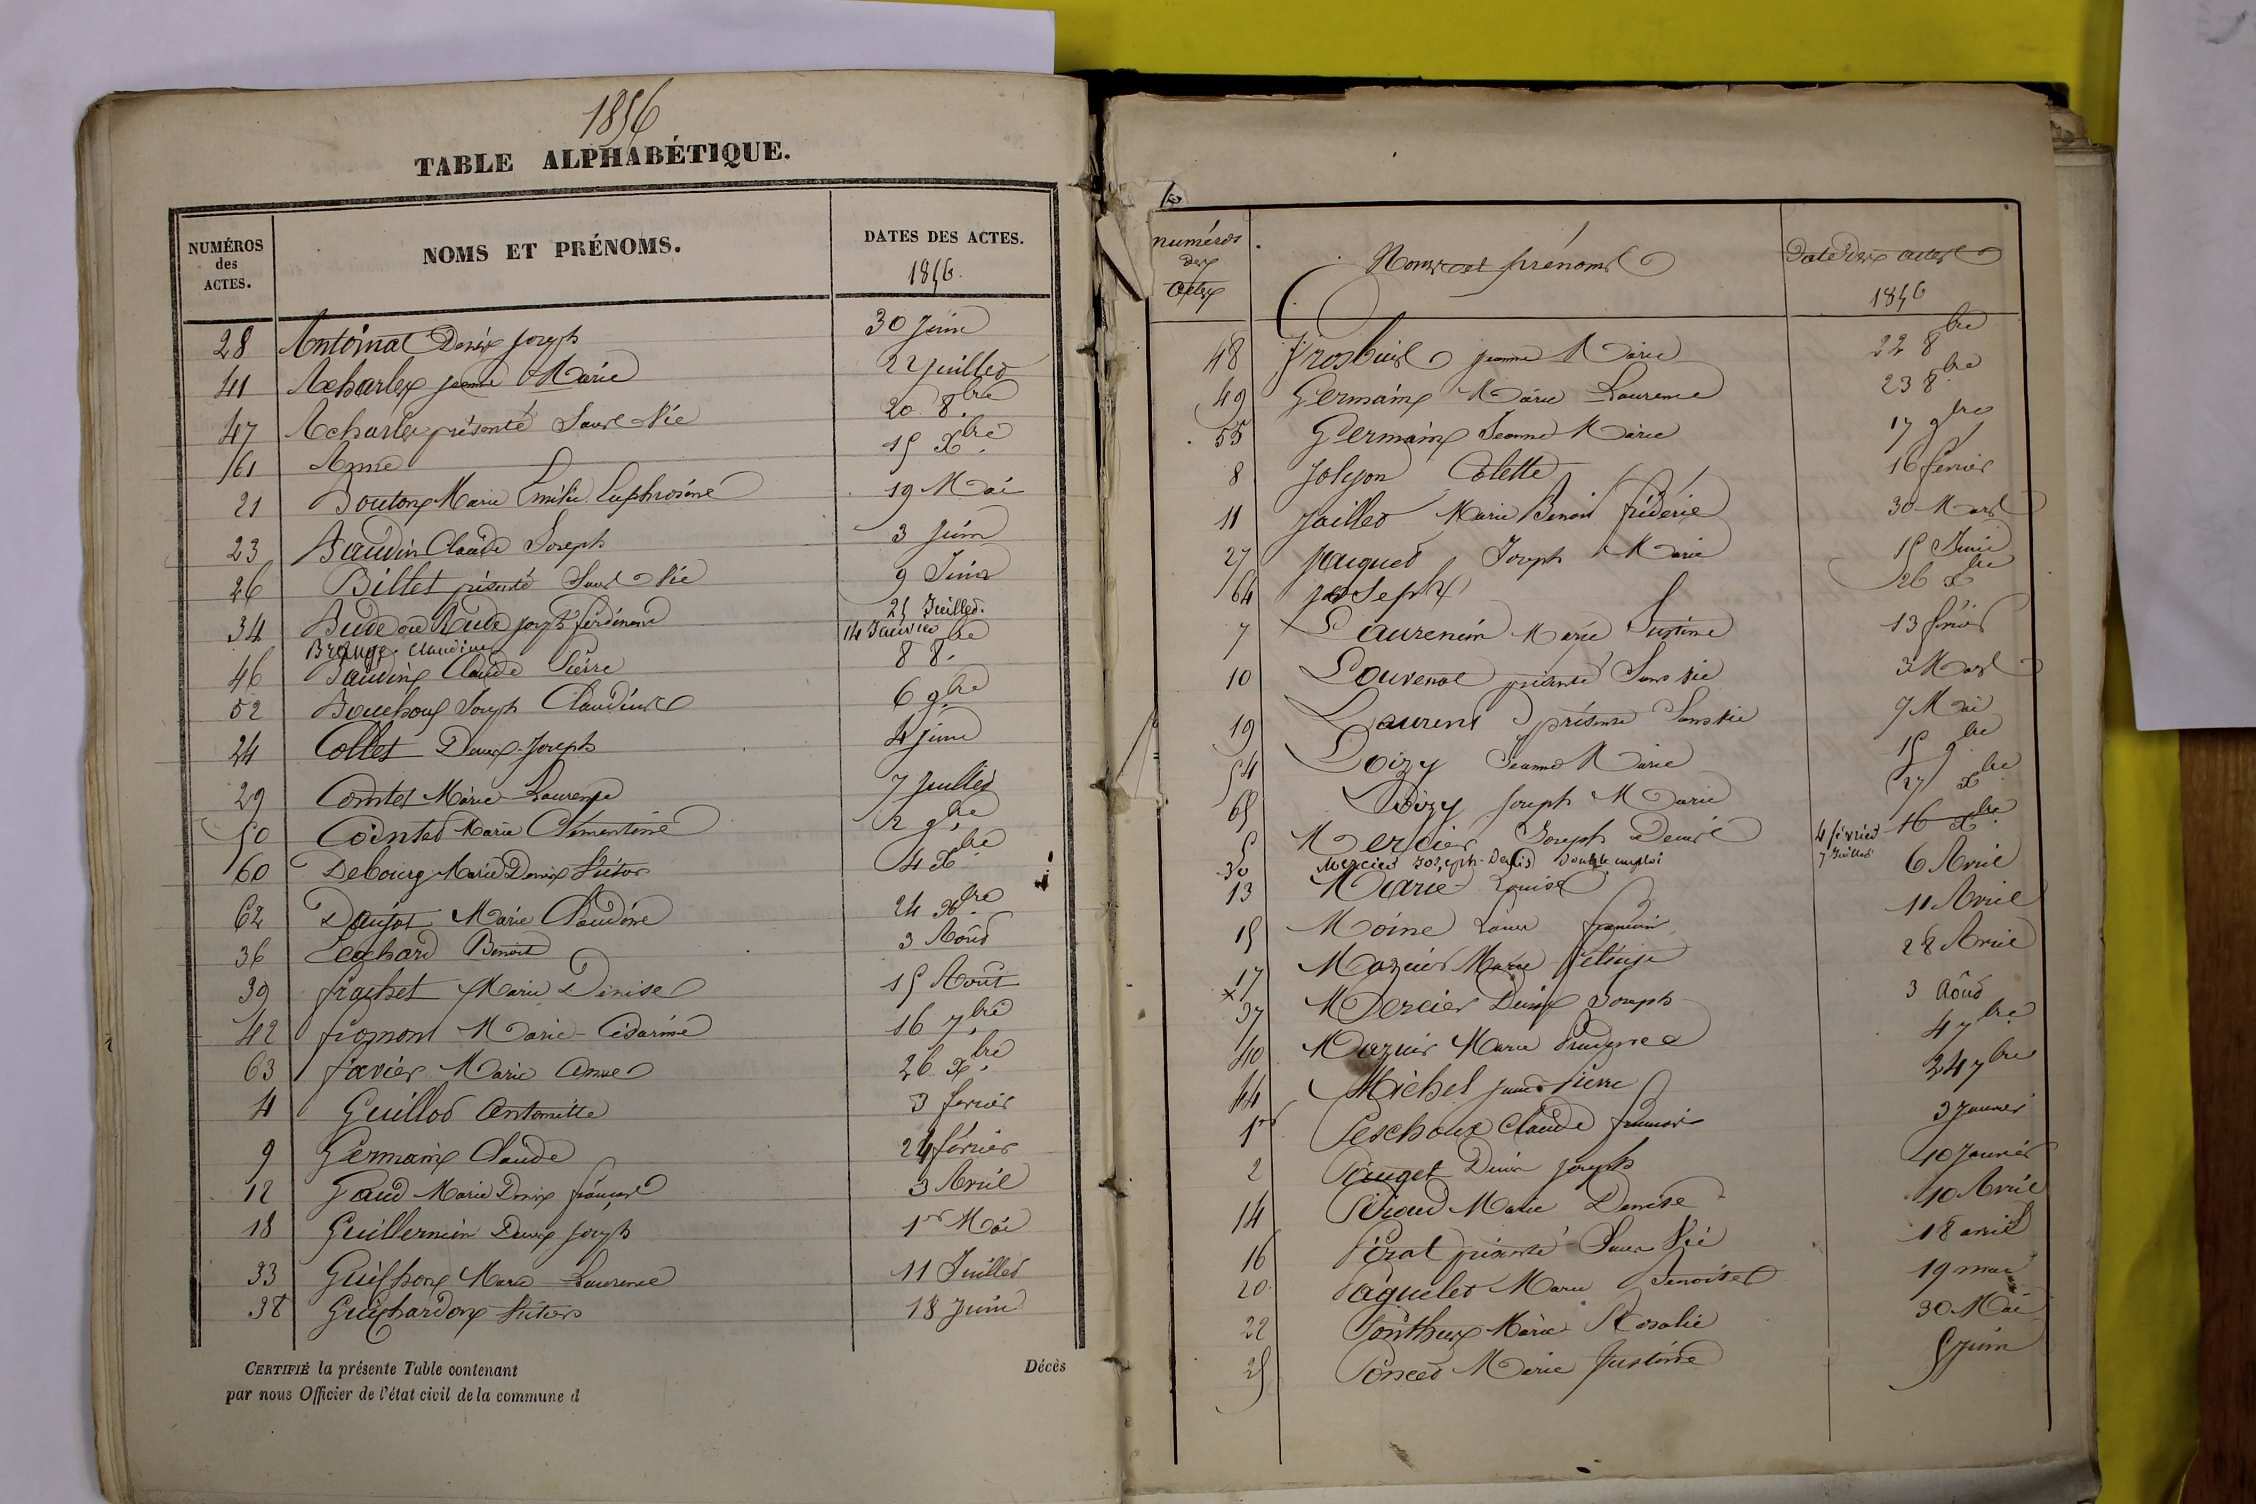 1856
TABLE ALPHABÉTIQUE.
NUMÉROS
des
ACTES.
NOMS ET PRÉNOMS.
DATES DES ACTES.
1856.
28 Antoinat Denis Joseph 30 Juin
41 Acharles Jeanne Marie 2 Juillet
47 Acharles présenté Sans Vie 20 8.bre
61 Anne 15 X.bre
21 Bouton Marie Emilie Euphrosine 19 Mai
23 Baudin Claude Joseph 3 Juin
26 Billet présenté Sans Vie 9 Juin
34 Bude ou Rude Joseph ferdinand 25 Juillet.
Brange Claudine 14 Janvier
46 Baudin Claude Pierre 8 8.bre
52 Bouchoux Joseph Claudius 6 9.bre
24 Collet Denis Joseph 4 Juin
29 Comtet Marie Laurence 7 Juillet
50 Cointet Marie Clémentine 2 9.bre
60 Debourg Marie Denis Victor 4 X.bre
62 Daujat Marie Claudine 24 X.bre
36 Eochard Benoit 3 Août
39 frachet Marie Denise 15 Août
42 fromont Marie Césarine 16 7.bre
63 favier Marie Anne 26 X.bre
4 Guillot Antoinette 3 fevrier
9 Germain Claude 24 février
12 Gaud Marie Denis françois 3 Avril
18 Guillermin Denis Joseph 1er Mai
33 Guichon Marie Laurence 11 Juillet
38 Guichardon Victor 18 Juin
CERTIFIÉ la présente Table contenant Décès
par nous Officier de l'état civil de la commune d
numéros
des
Actes
Noms et prénoms
Date des actes
1856
48 Jeanne Marie 22 8bre
49 Germain Marie Laurence 23 8.bre
55 Germain Jeanne Marie 17 9bre
8 Jolyon Colette 16 fevrier
11 Jaillet Marie Benoit frédéric 30 Mars
27 Jacquet Joseph Marie 15 Juin
64 Joseph 26 Xbre
7 Laurencin Marie Justine 13 février
10 Louvenat présenté Sans vie 3 Mars
19 Laurent présenté Sans vie 9 Mai
54 Loizy Jeanne Marie 15 9bre
65 Loizy Joseph Marie 27 Xbre
5 Mercier Joseph Denis 4 février 16 Xbre
30 Mercier Joseph-Denis Double emploi 7 Juillet
13 Marie Louise 6 Avril
15 Moine 11 Avril
17 Mazuir Marie 28 Avril
x
37 Mercier Denis Joseph 3 Août
40 Mazuir Marie 4 7bre
44 Michel Pierre 24 7bre
1er Peschoux Claude françois 3 Janvier
2 Pauget Denis Joseph 10 Janvier
14 Marie Denise 10 Avril
16 présenté Sans Vie 18 avril
20 Paquelet Marie Benoite 19 mai
22 Ponthus Marie Rosalie 30 Mai
25 Poncet Marie Justine 5 Juin